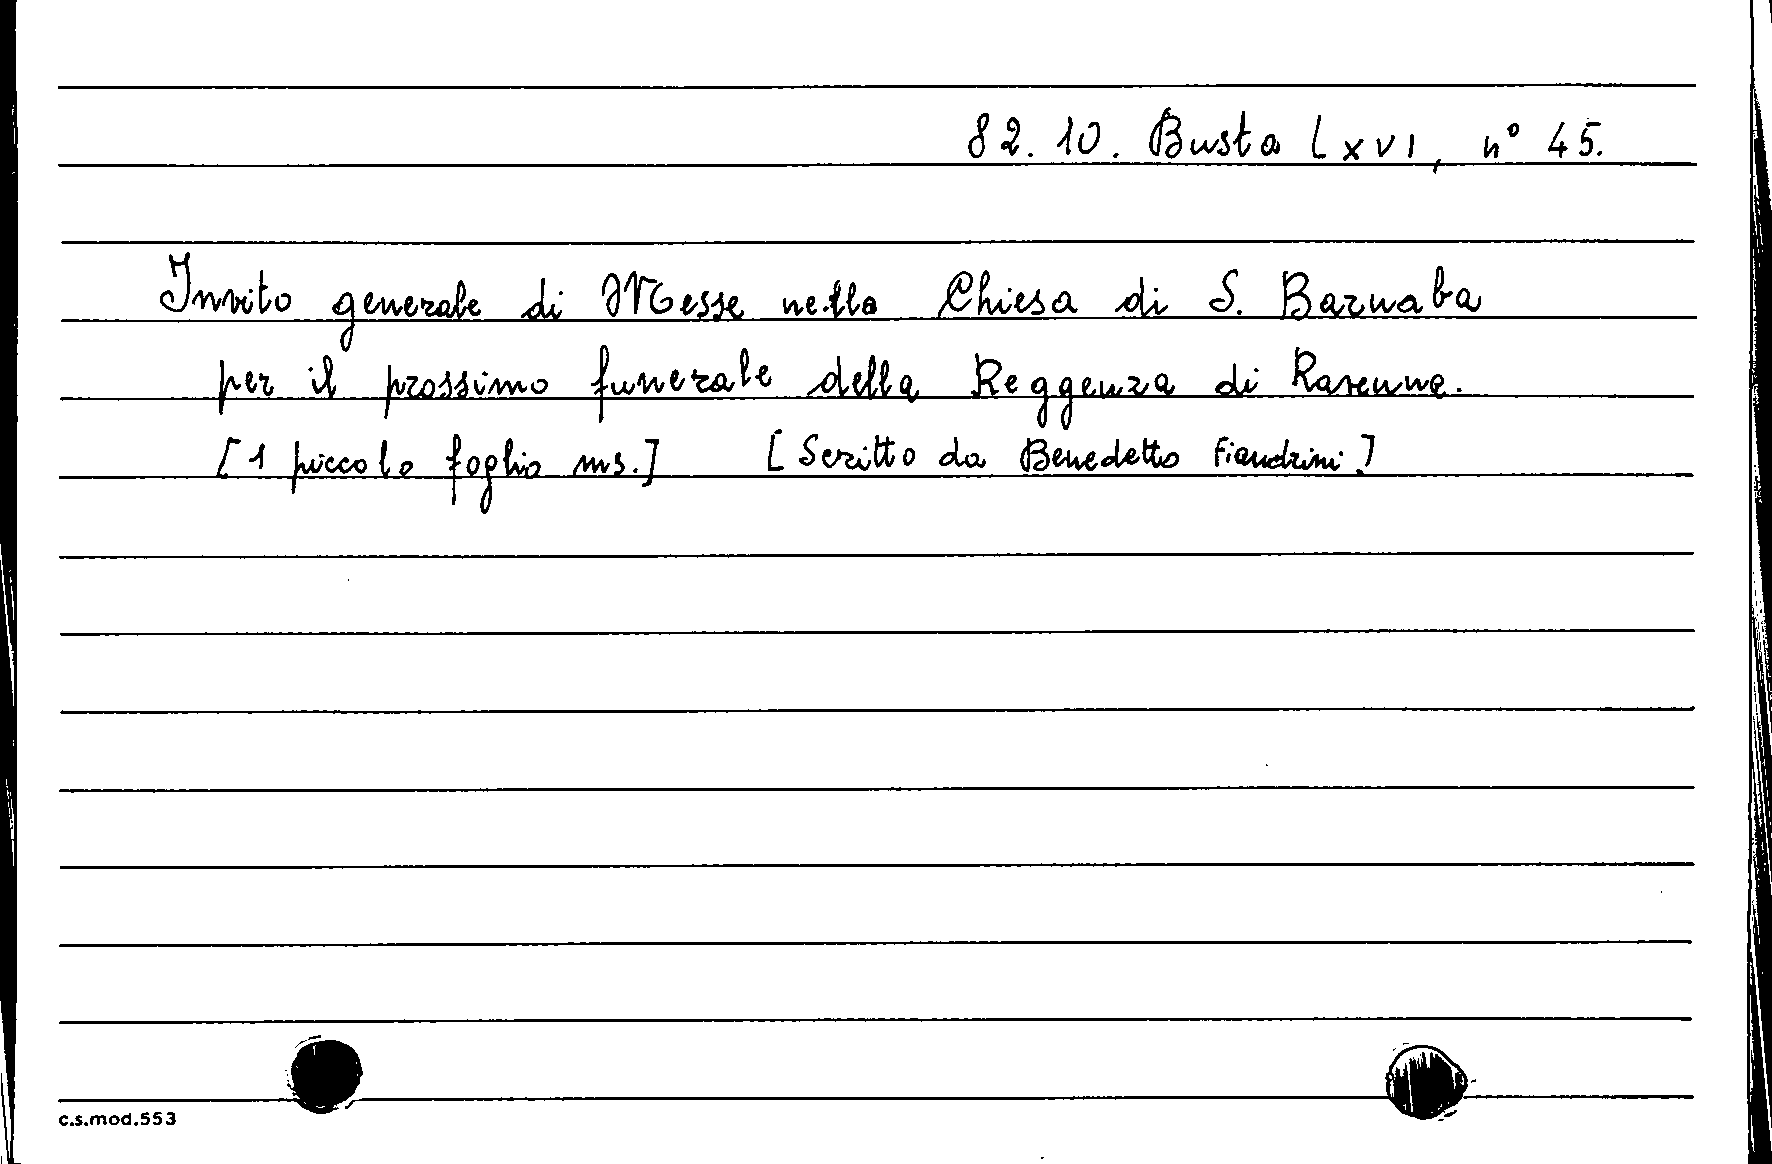 82.10. Busta LXVI, n° 45.
Invito generale di Messe nella Chiesa di S. Barnaba
per il prossimo funerale della Reggenza di Ravenna.
[1 piccolo foglio ms.] [Scritto da Benedetto Fiandrini]
c.s.mod.553